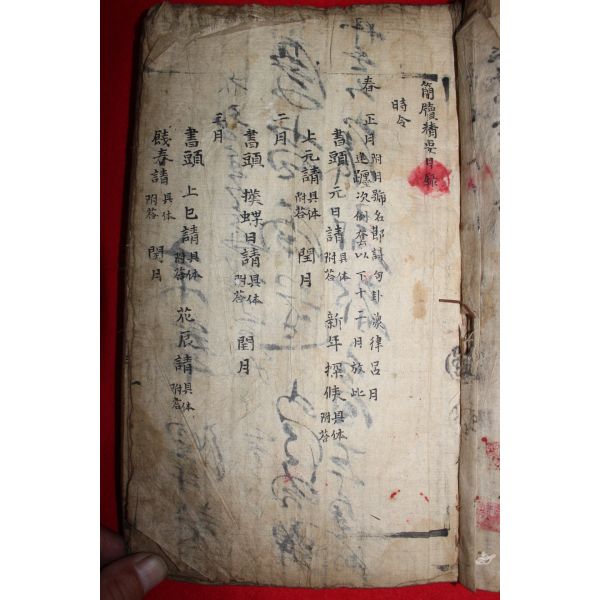 簡牘精要目錄
時令
春 正月 附月號名節詩句卦 律呂月建躔次倒套以下十二月放此
書頭 元日請 具体附答 新年探候 具体附答
上元請 具体附答 閏月
二月
書頭 撲蝶日請 具体附答 閏月
三月
書頭 上巳請 具体附答 花辰請 具体附答
餞春請 具体附答 閏月